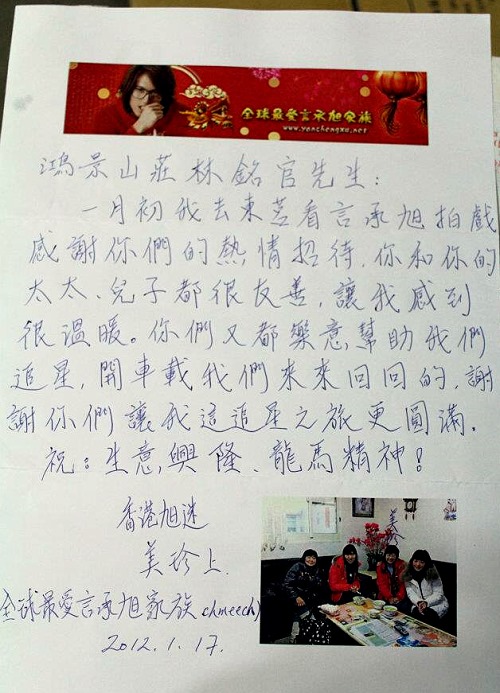 全球最愛言承旭家族
www.yanchengxu.net
鴻景山莊林銘官先生:
一月初我去東莒看言承旭拍戲
感謝你們的熱情招待,你和你的
太太、兒子都很友善,讓我感到
很溫暖。你們又都樂意幫助我們
追星,開車載我們來來回回的,謝
謝你們讓我這追星之旅更圓滿.
祝:生意興隆、龍馬精神!
香港旭迷
美珍上.
全球最愛言承旭家族 chmeech)
2012.1.17.
美珍